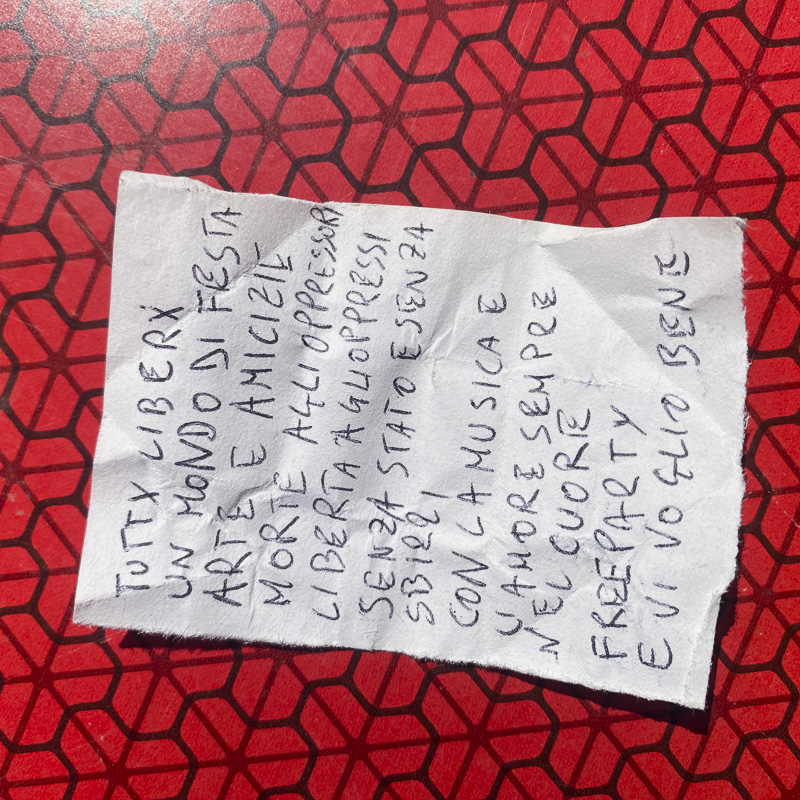 TUTTX LIBERX
UN MONDO DI FESTA
ARTE E AMICIZIE
MORTE AGLI OPPRESSORI
LIBERTA AGLI OPPRESSI
SENZA STATO E SENZA
SBIRRI
CON LA MUSICA E
L'AMORE SEMPRE
NEL CUORE
FREEPARTY
E VI VOGLIO BENE